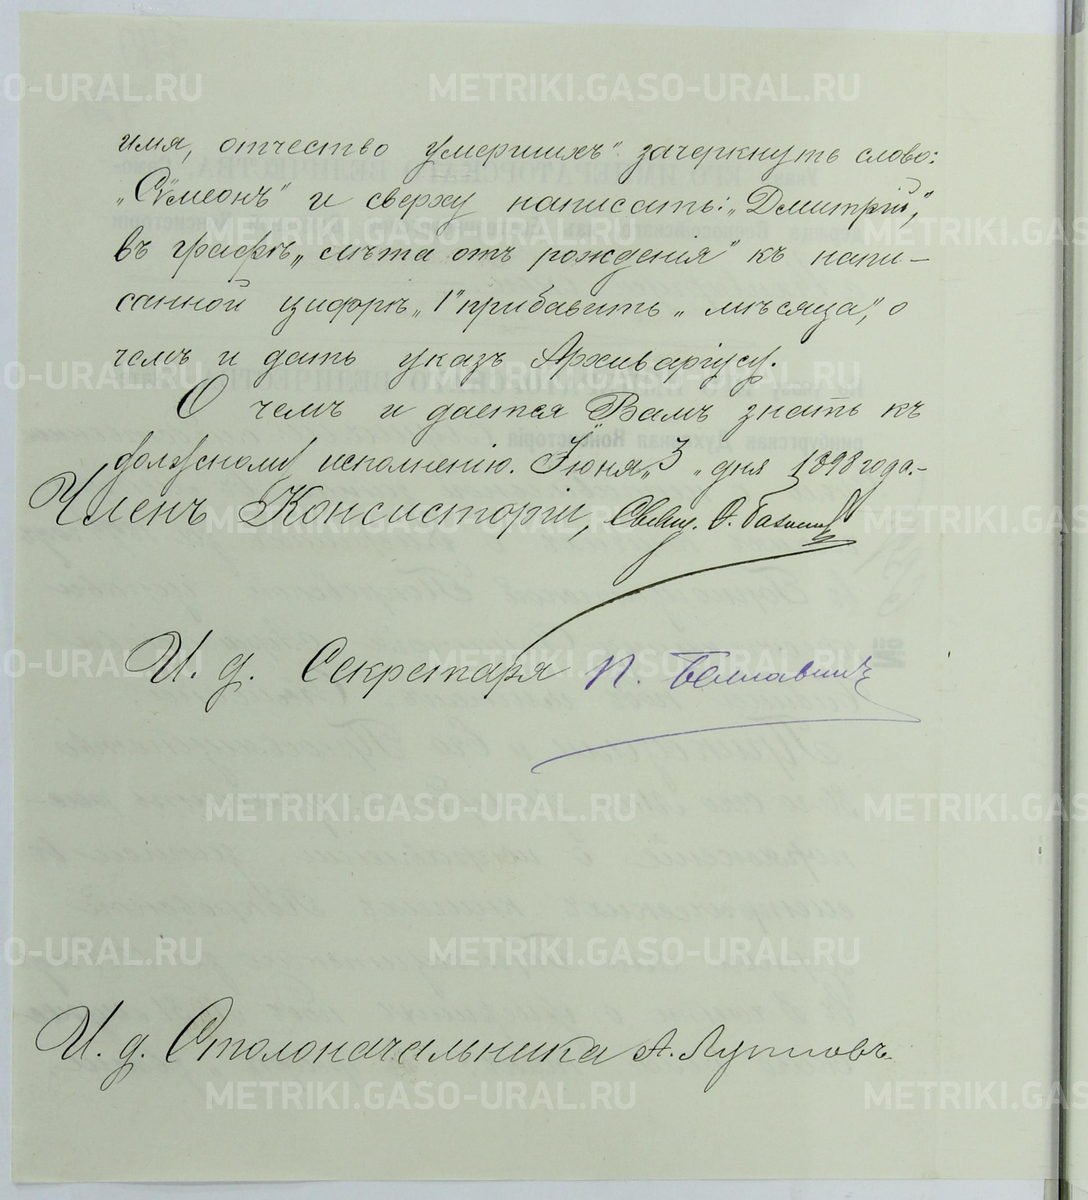 имя, отчество умершихъ" зачеркнуть слово:
„Сѵмеонъ" и сверху написать: „Дмитрій",
въ графѣ „лѣта отъ рожденія" къ напи-
санной цифрѣ „1" прибавить „мѣсяца", о
чемъ и дать указъ Архиваріусу.
О чемъ и дается Вамъ знать къ
должному исполненію. Іюня „3" дня 1898 года.-
Членъ Консисторіи, Свящ.
И. д. Секретаря П.
И. д. Столоначальника А. Лупповъ
METRIKI.GASO-URAL.RU